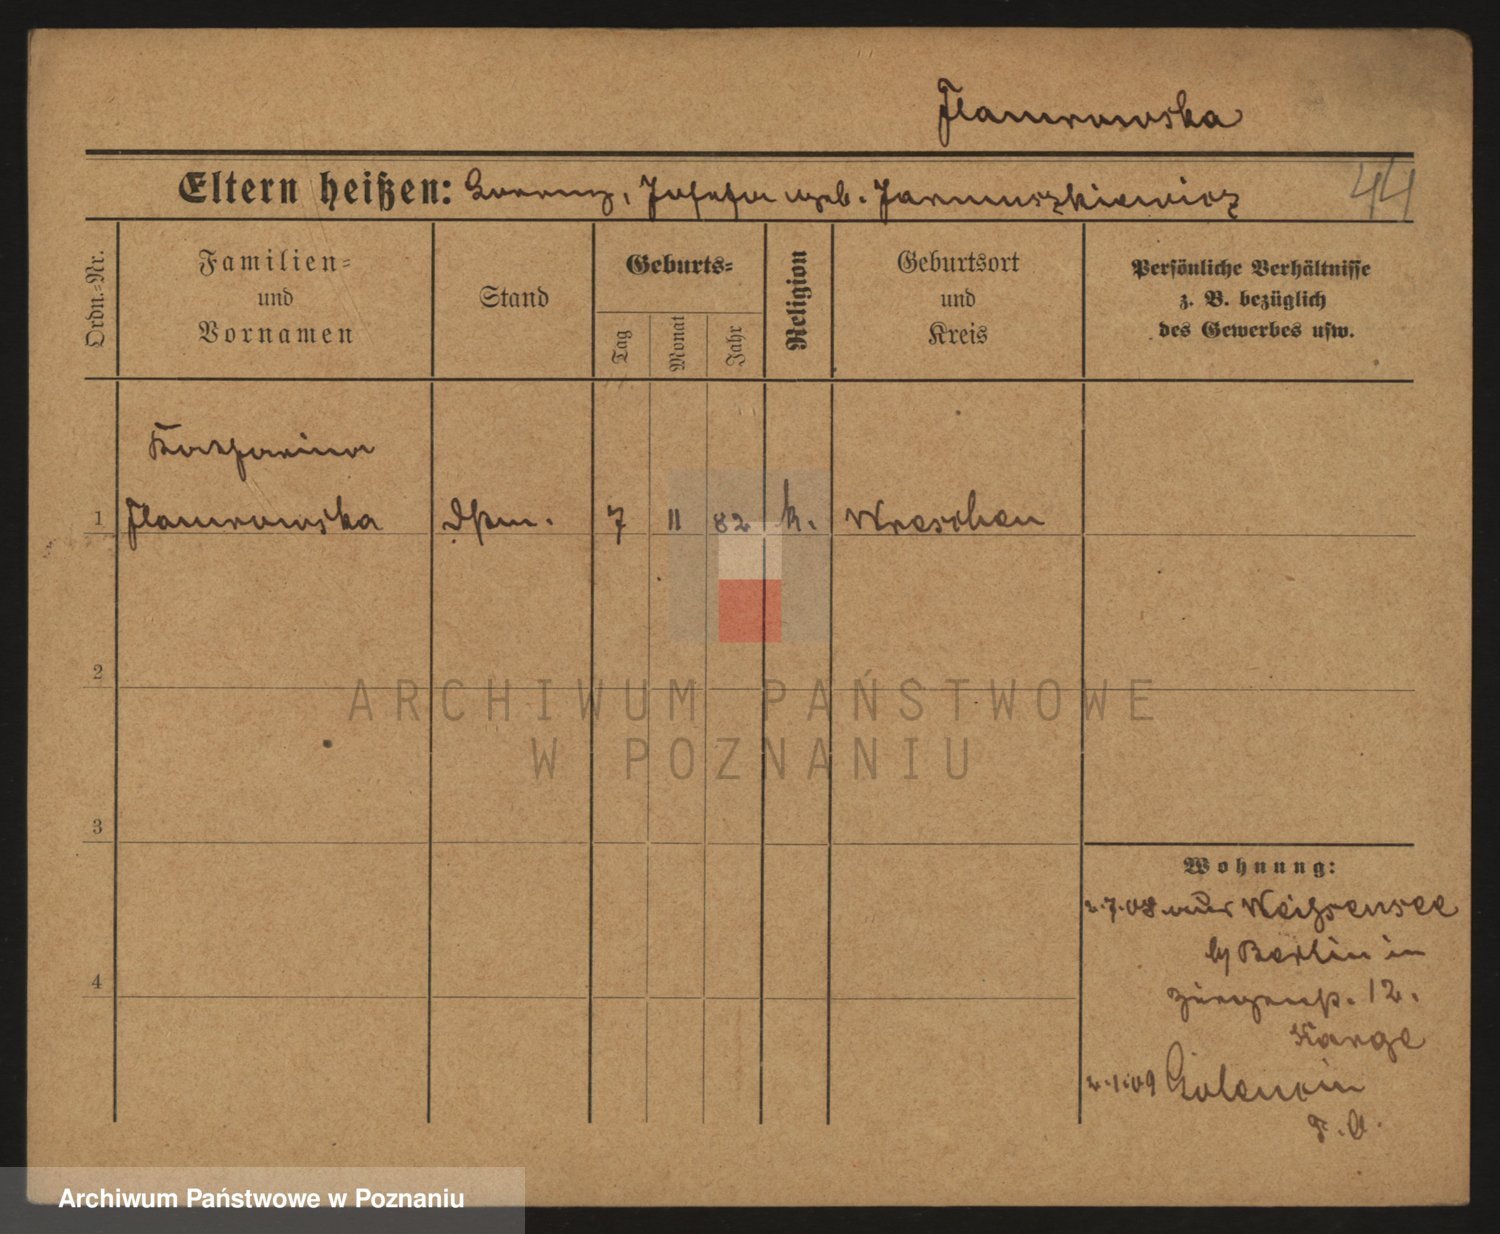 Flaurowska
Eltern heißen: Lorenz, Josefa geb. Januszkiewicz
44
Ordn.-Nr.
Familien-
und
Vornamen
Stand
Geburts-
Tag
Monat
Jahr
Religion
Geburtsort
und
Kreis
Persönliche Verhältnisse
z. B. bezüglich
des Gewerbes usw.
Katharina
1 Flaurowska 7 11 82 k. Wreschen
2
ARCHIWUM PAŃSTWOWE
W POZNANIU
3
Wohnung:
2.7.08 aus Weißensee
b/ Berlin in
12.
4
Karge
2.1.09
Archiwum Państwowe w Poznaniu